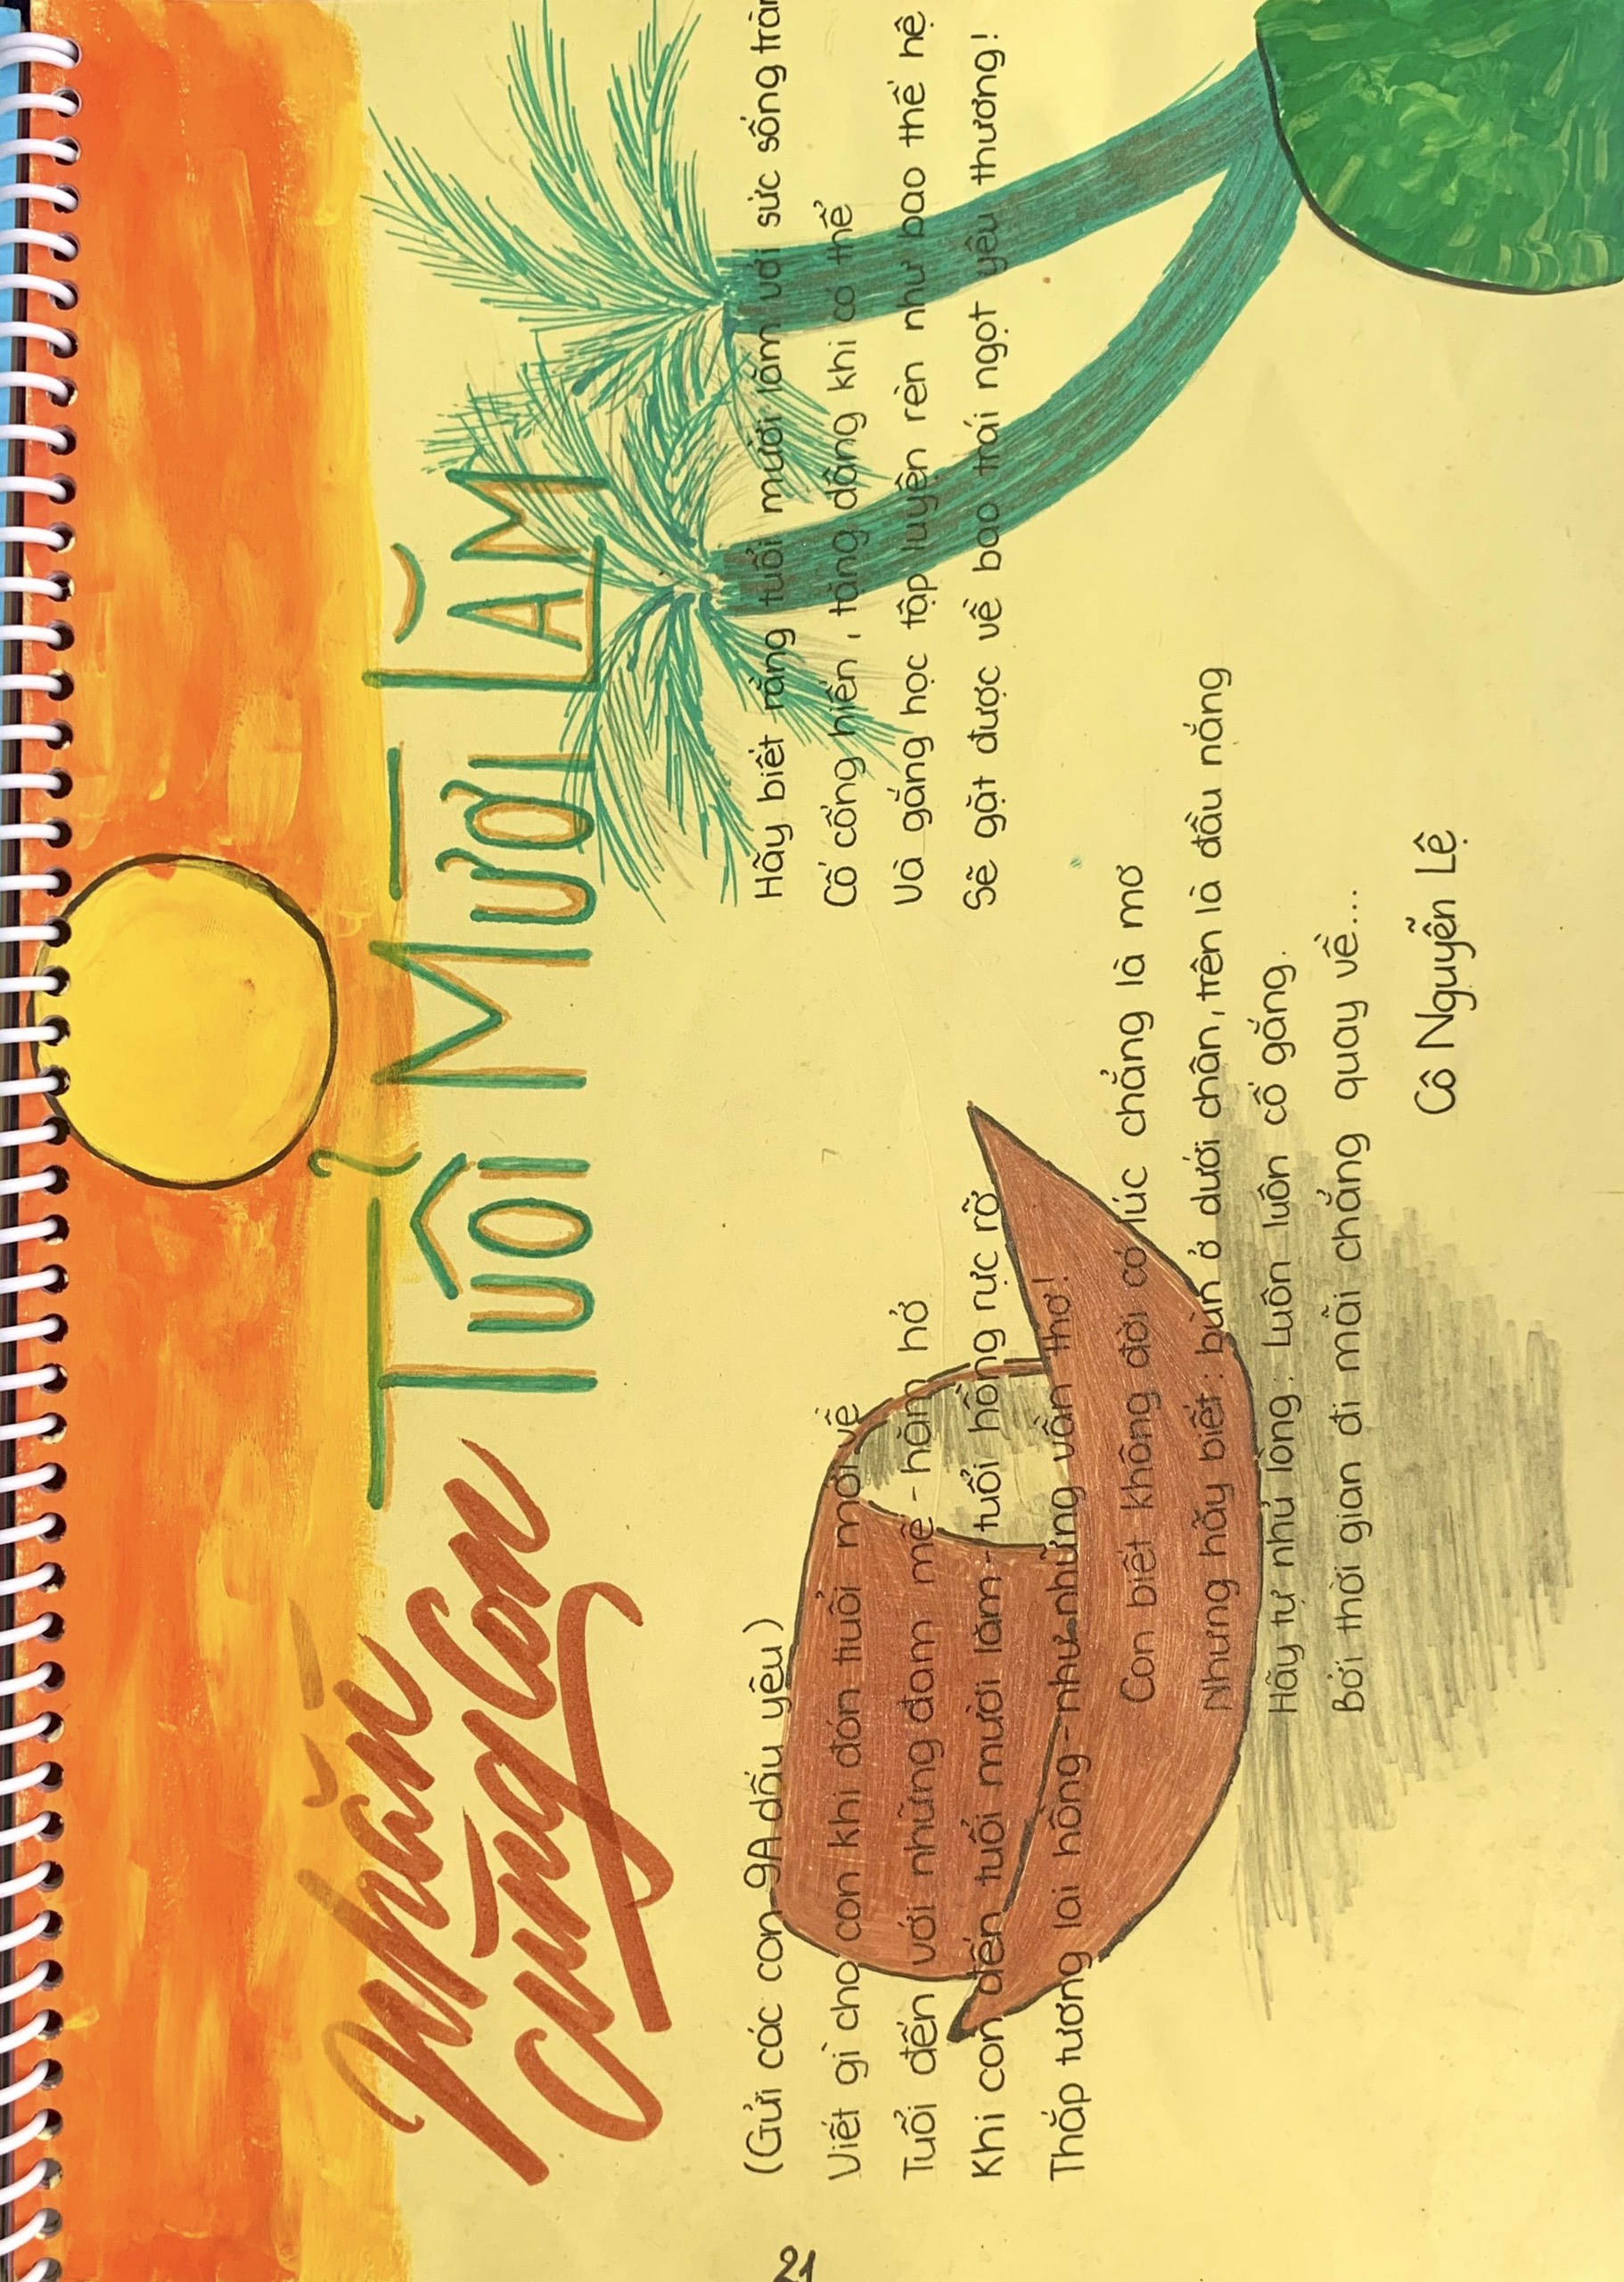 Nhắn
cùng Con
TUỔI MƯỜI LĂM
(Gửi các con 9A dấu yêu)
Viết gì cho con khi đón tuổi mới về
Tuổi đến với những đam mê - hăm hở
Khi con đến tuổi mười lăm - tuổi hồng rực rỡ
Thắp tương lai hồng - như những vần thơ!
Con biết không đời có lúc chẳng là mơ
Nhưng hãy biết: bùn ở dưới chân, trên là đầu nắng
Hãy tự nhủ lòng: Luôn luôn cố gắng.
Bởi thời gian đi mãi chẳng quay về...
Hãy biết rằng tuổi mười lăm với sức sống
Cố cống hiến, tặng dâng khi có thể
Và gắng học tập luyện rèn như bao thế hệ
Sẽ gặt được về bao trái ngọt yêu thương!
Cô Nguyễn Lệ
21